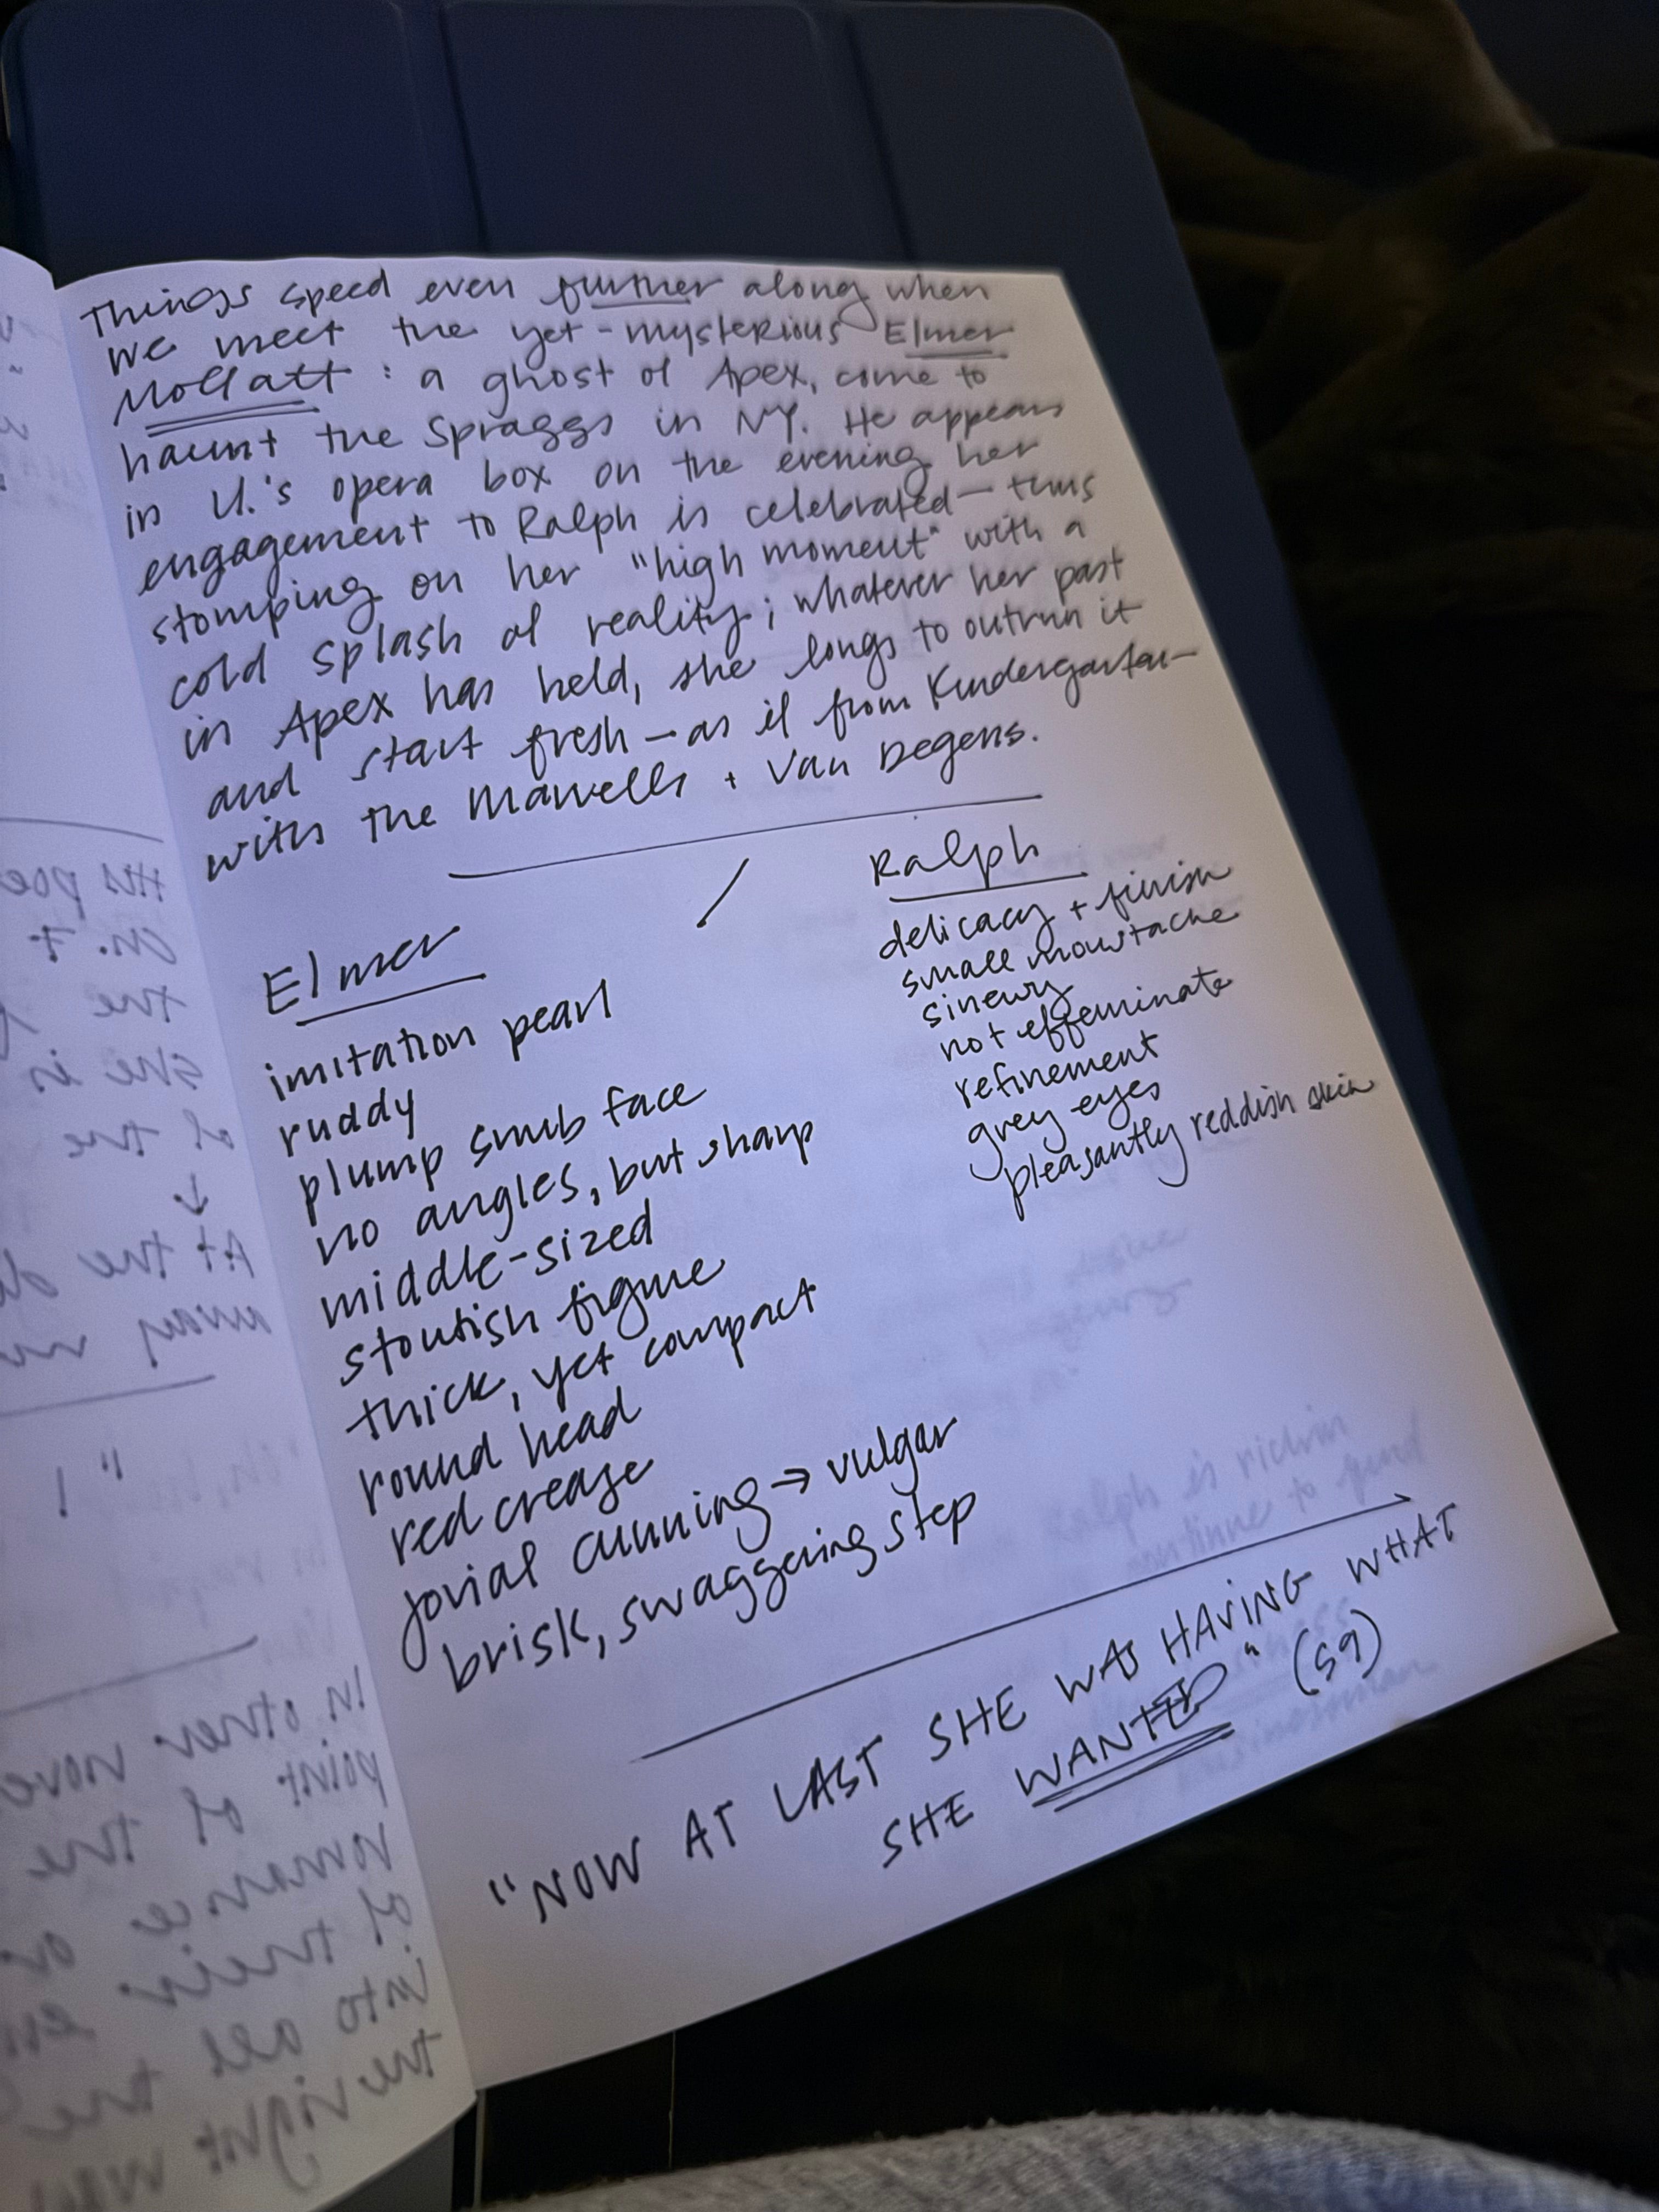 Things speed even further along when
we meet the yet-mysterious Elmer
Moffatt: a ghost of Apex, come to
haunt the Spraggs in NY. He appears
in U.'s opera box on the evening her
engagement to Ralph is celebrated—thus
stomping on her "high moment" with a
cold splash of reality; whatever her past
in Apex has held, she longs to outrun it
and start fresh—as if from Kindergarten—
with the Marvells + Van Degens.
Elmer
imitation pearl
ruddy
plump snub face
no angles, but sharp
middle-sized
stoutish figure
thick, yet compact
round head
red crease
jovial cunning → vulgar
brisk, swaggering step
/
Ralph
delicacy + finish
small moustache
sinewy
not effeminate
refinement
grey eyes
pleasantly reddish skin
"NOW AT LAST SHE WAS HAVING WHAT
SHE WANTED" (59)
His poe
on. +
the
she is
of the
↓
At the d
away
" !
In other nove
point of the
romance o
of their
into all the
the right